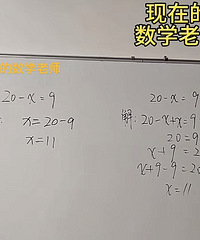 现在的
数学老
的数学老师
20-x=9
: x=20-9
x=11
20-x=9
解: 20-x+x=9
20=9
x+9=2
x+9-9=20
x=11